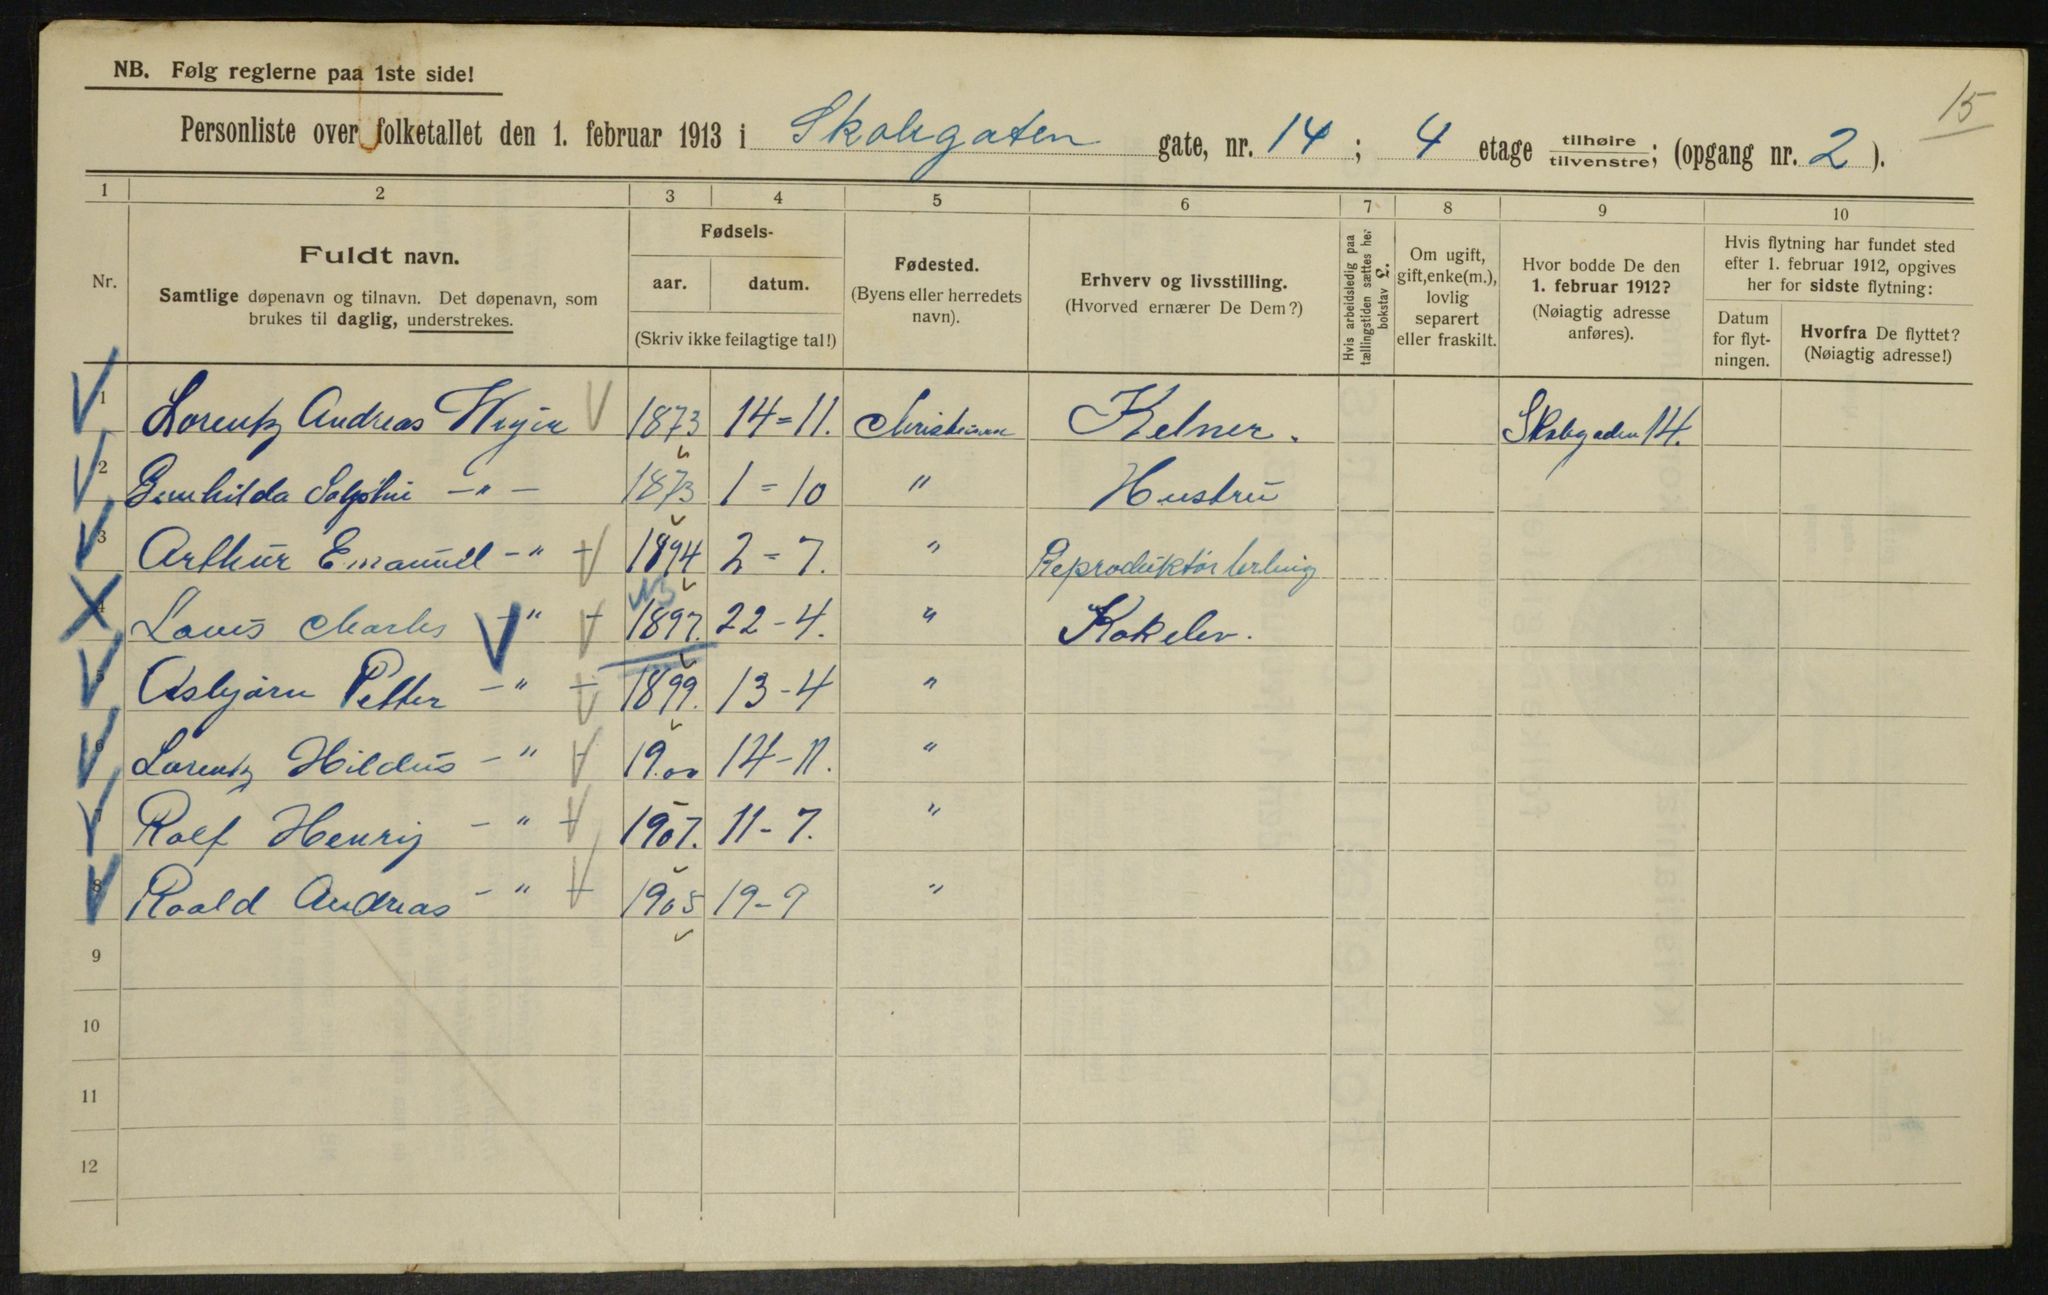 15
NB. Følg reglerne paa 1ste side!
Personliste over folketallet den 1. februar 1913 i Skolegaten gate, nr. 14 ; 4 etage tilhøire tilvenstre; (opgang nr. 2 ).
1 2 3 4 5 6 7 8 9 10
Nr.
Fuldt navn.
Samtlige døpenavn og tilnavn. Det døpenavn, som
brukes til daglig, understrekes.
Fødsels-
aar. datum.
(Skriv ikke feilagtige tal!)
Fødested.
(Byens eller herredets
navn).
Erhverv og livsstilling.
(Hvorved ernærer De Dem?)
Hvis arbeidsledig paa
tællingstiden sættes her
bokstav £.
Om ugift,
gift,enke(m.),
lovlig
separert
eller fraskilt.
Hvor bodde De den
1. februar 1912?
(Nøiagtig adresse
anføres).
Hvis flytning har fundet sted
efter 1. februar 1912, opgives
her for sidste flytning:
Datum
for flyt-
ningen.
Hvorfra De flyttet?
(Nøiagtig adresse!)
1 Lorentz Andreas 1873 14=11. Kelner. 14.
2 1873 1=10 " Hustru
3 Arthur Emanuel -"- 1894 2=7. "
4 Louis Charles -"- 1897. 22-4. " Kokelev.
5 Asbjørn Petter -"- 1899. 13-4 "
6 Lorentz Hildus -"- 19.00 14-11. "
7 Rolf Henrij -"- 1907. 11-7. "
8 Roald Andreas -"- 1905 19-9 "
9
10
11
12